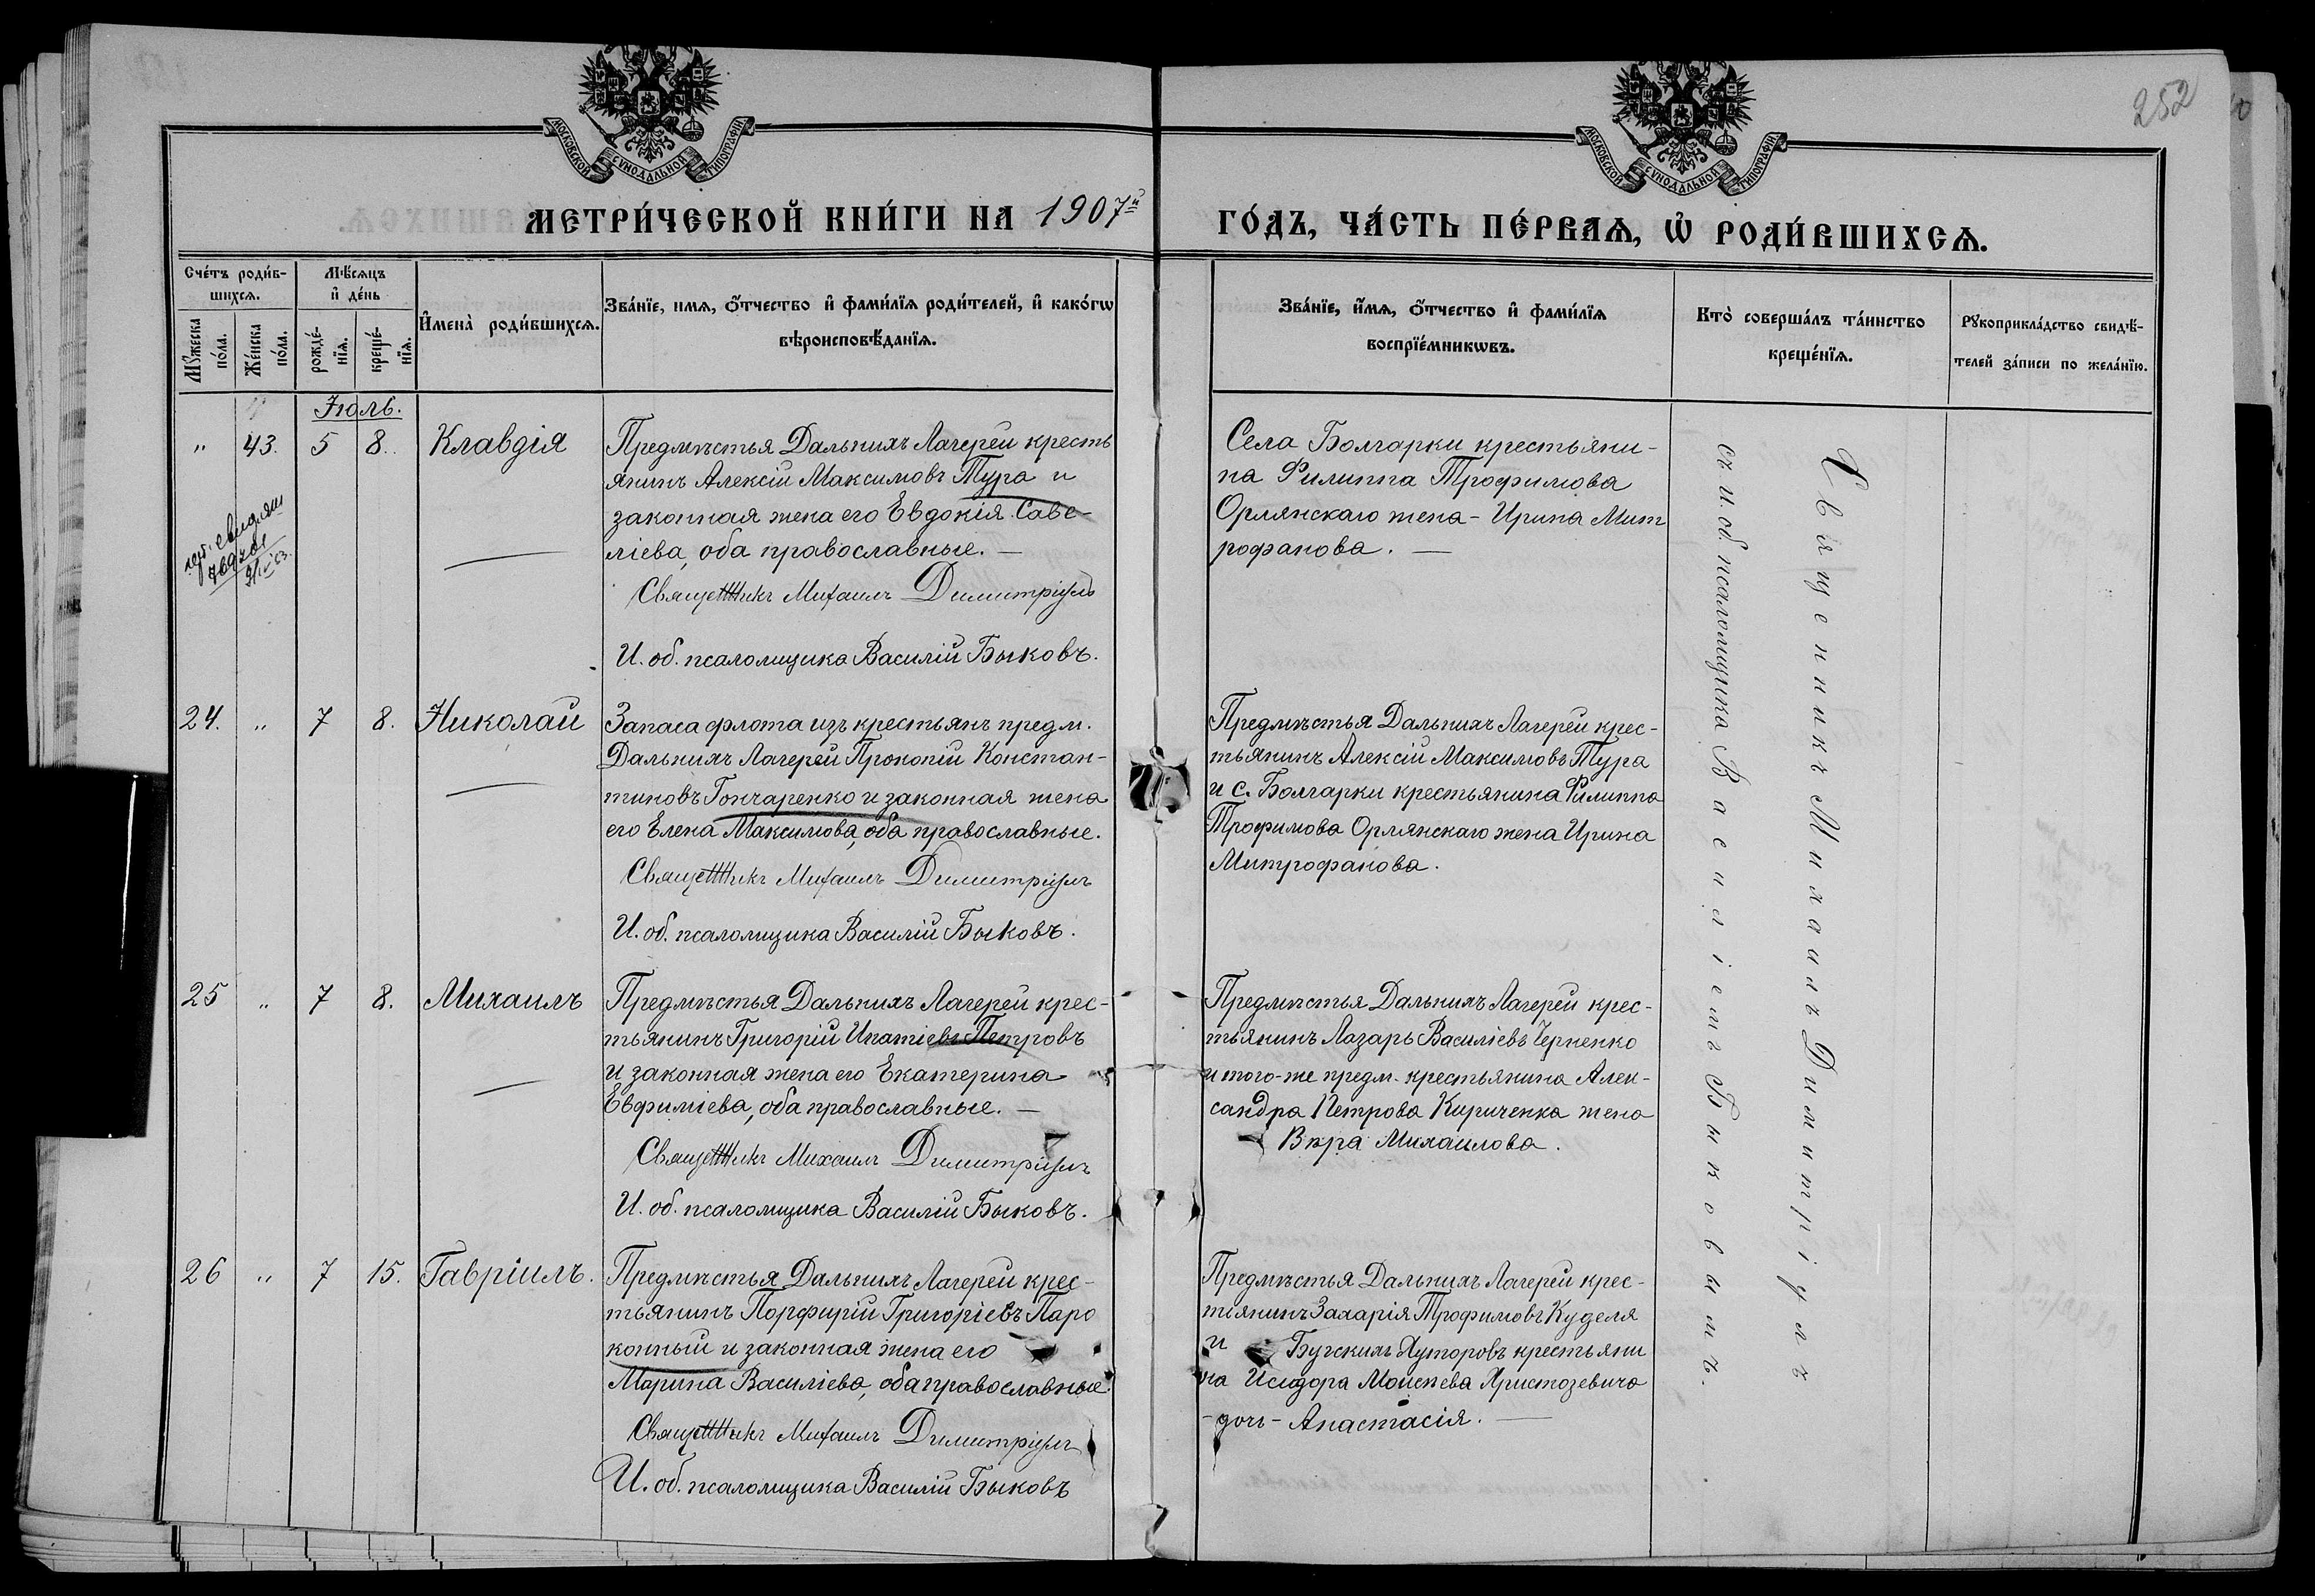 252
МОСКОВСКОЙ СѴНОДАЛЬНОЙ ТИПОГРАФІИ
МОСКОВСКОЙ СѴНОДАЛЬНОЙ ТИПОГРАФІИ
МЕТРИ́ЧЕСКОЙ КНИ́ГИ НА 1907й
ГО́ДЪ, ЧА́СТЬ ПЕ́РВАѦ, Ѡ҆ РОДИ́ВШИХСѦ.
Сче́тъ роди́в-
шихсѧ.
Мѣ́сѧцъ
и҆ де́нь
Мꙋ́жеска
по́ла.
Же́нска
по́ла.
рожде́-
нїѧ.
креще́-
нїѧ.
И҆мена̀ роди́вшихсѧ.
Зва́нїе, имѧ, ѻ҆́тчество и҆ фами́лїѧ роди́телей, и҆ како́гѡ
вѣроисповѣ́данїѧ.
Зва́нїе, и҆́мѧ, ѻ҆́тчество и҆ фами́лїѧ
воспрїе́мникѡвъ.
Кто̀ соверша́лъ та́инство
креще́нїѧ.
Рꙋкоприкла́дство свидѣ́-
телей за́писи по жела́нїю.
Іюль.
" 43. 5 8. Клавдія
Предмѣстья Дальнихъ Лагерей кресть
янинъ Алексій Максимовъ Тура и
законная жена его Евдокія Саве-
ліева, оба православные. —
Священникъ Михаилъ Димитріулъ
И. об. псаломщика Василій Быковъ.
Села Болгарки крестьяни-
на Филиппа Трофимова
Орлянскаго жена - Ирина Мит
рофанова. —
24. " 7 8. Николай
Запаса флота изъ крестьянъ предм.
Дальнихъ Лагерей Прокопій Констан-
тиновъ Гончаренко и законная жена
его Елена Максимова, оба православные.
Священникъ Михаилъ Димитріулъ
И. об. псаломщика Василій Быковъ.
Предмѣстья Дальнихъ Лагерей крес-
тьянинъ Алексій Максимовъ Тура
и с. Болгарки крестьянина Филиппа
Трофимова Орлянскаго жена Ирина
Митрофанова.
25 " 7 8. Михаилъ
Предмѣстья Дальнихъ Лагерей крес-
тьянинъ Григорій Ипатіевъ Петровъ
и законная жена его Екатерина
Евфиміева, оба православные. —
Священникъ Михаилъ Димитріулъ
И. об. псаломщика Василій Быковъ.
Предмѣстья Дальнихъ Лагерей крес-
тьянинъ Лазарь Василіевъ Черненко
и того-же предм. крестьянина Алек-
сандра Петрова Кириченка жена
Вѣра Михаилова.
26 " 7 15. Гавріилъ.
Предмѣстья Дальнихъ Лагерей крес-
тьянинъ Порфирій Григоріевъ Паро
конный и законная жена его
Марина Василіева, оба православные.
Священникъ Михаилъ Димитріулъ
И. об. псаломщика Василій Быковъ
Предмѣстья Дальнихъ Лагерей крес-
тьянинъ Захарія Трофимовъ Куделя
и Бугскихъ Хуторовъ крестьяни
на Исидора Моисеева Христозевича
- дочь - Анастасія. —
Священникъ Михаилъ Димитріулъ
съ и. об. псаломщика Василіемъ Быковымъ.